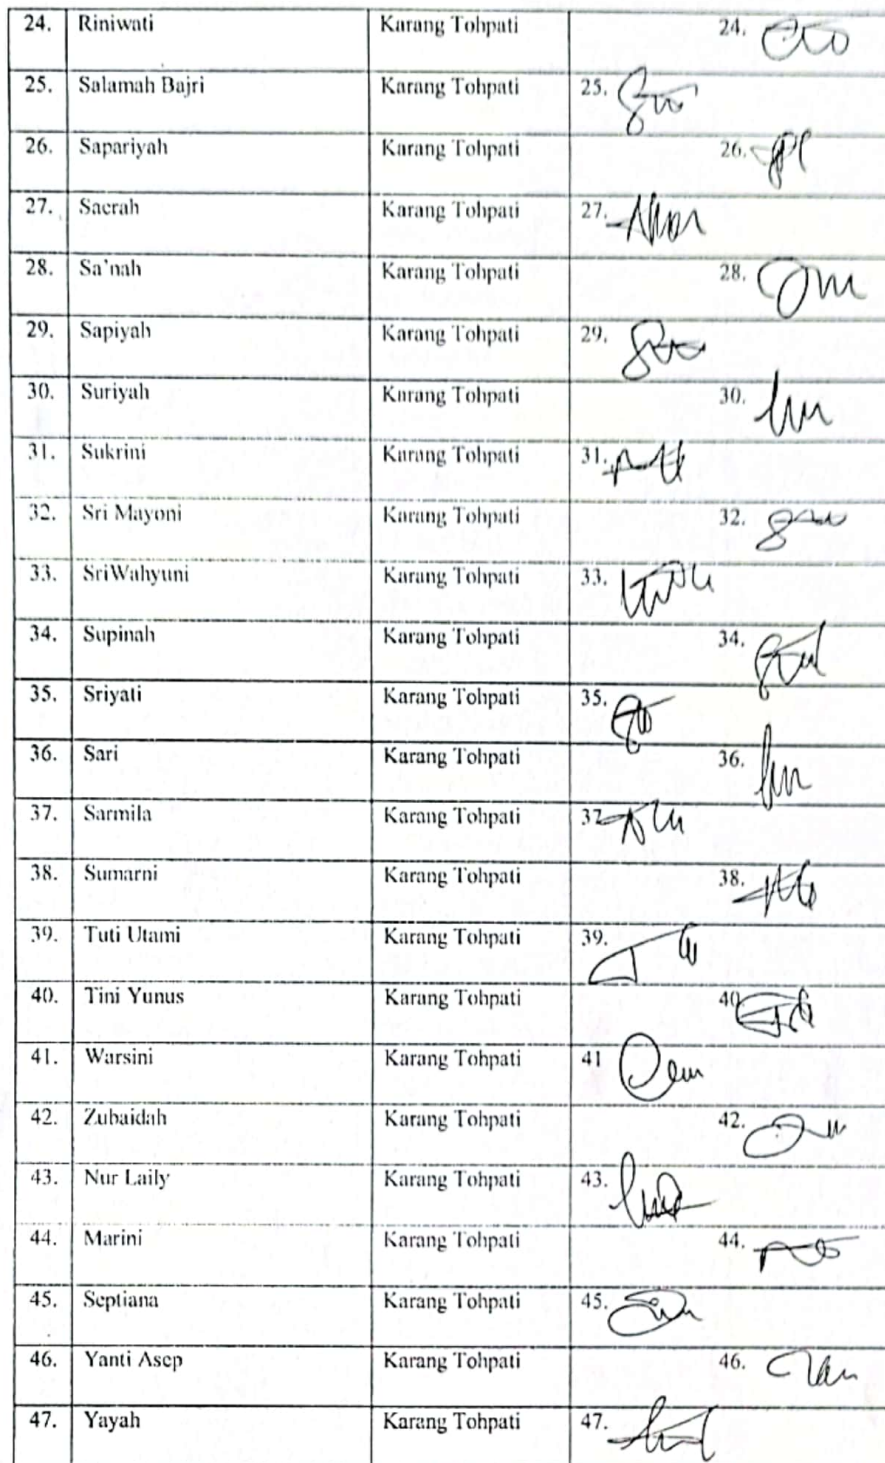 24. Riniwati Karang Tohpati 24.
25. Salamah Bajri Karang Tohpati 25.
26. Sapariyah Karang Tohpati 26.
27. Saerah Karang Tohpati 27.
28. Sa'nah Karang Tohpati 28.
29. Sapiyah Karang Tohpati 29.
30. Suriyah Karang Tohpati 30.
31. Sukrini Karang Tohpati 31.
32. Sri Mayoni Karang Tohpati 32.
33. SriWahyuni Karang Tohpati 33.
34. Supinah Karang Tohpati 34.
35. Sriyati Karang Tohpati 35.
36. Sari Karang Tohpati 36.
37. Sarmila Karang Tohpati 37
38. Sumarni Karang Tohpati 38.
39. Tuti Utami Karang Tohpati 39.
40. Tini Yunus Karang Tohpati 40
41. Warsini Karang Tohpati 41
42. Zubaidah Karang Tohpati 42.
43. Nur Laily Karang Tohpati 43.
44. Marini Karang Tohpati 44.
45. Septiana Karang Tohpati 45.
46. Yanti Asep Karang Tohpati 46.
47. Yayah Karang Tohpati 47.